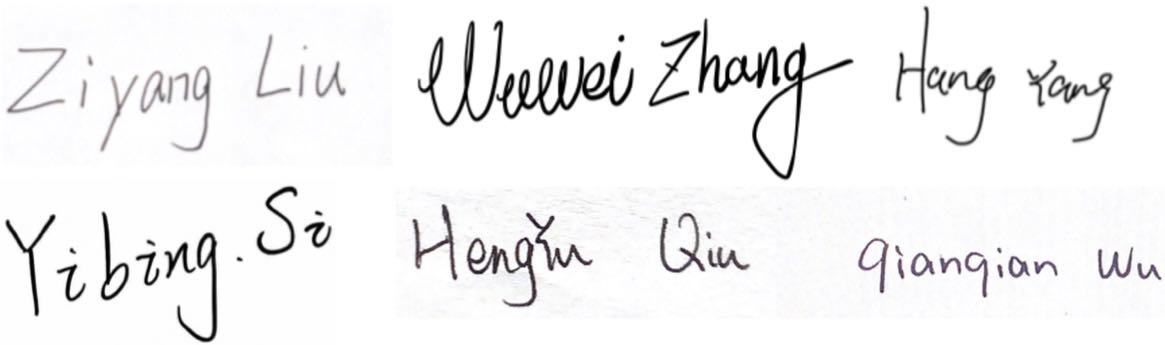 Ziyang Liu Wuwei Zhang Hang Yang
Yibing. Si Hengyu Qiu Qianqian Wu